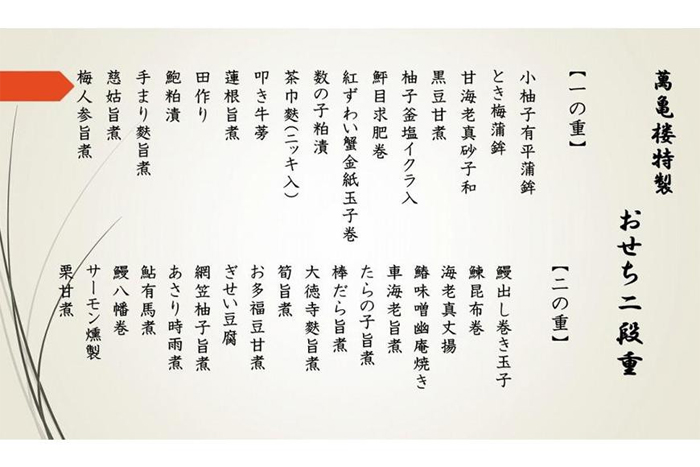 萬亀楼特製
おせち二段重
【一の重】
小柚子有平蒲鉾
とき梅蒲鉾
甘海老真砂子和
黒豆甘煮
柚子釜塩イクラ入
鮃目求肥巻
紅ずわい蟹金紙玉子巻
数の子粕漬
茶巾麩(ニッキ入)
叩き牛蒡
蓮根旨煮
田作り
鮑粕漬
手まり麩旨煮
慈姑旨煮
梅人参旨煮
【二の重】
鰻出し巻き玉子
鰊昆布巻
海老真丈揚
鰆味噌幽庵焼き
車海老旨煮
たらの子旨煮
棒だら旨煮
大徳寺麩旨煮
筍旨煮
お多福豆甘煮
ぎせい豆腐
網笠柚子旨煮
あさり時雨煮
鮎有馬煮
鰻八幡巻
サーモン燻製
栗甘煮